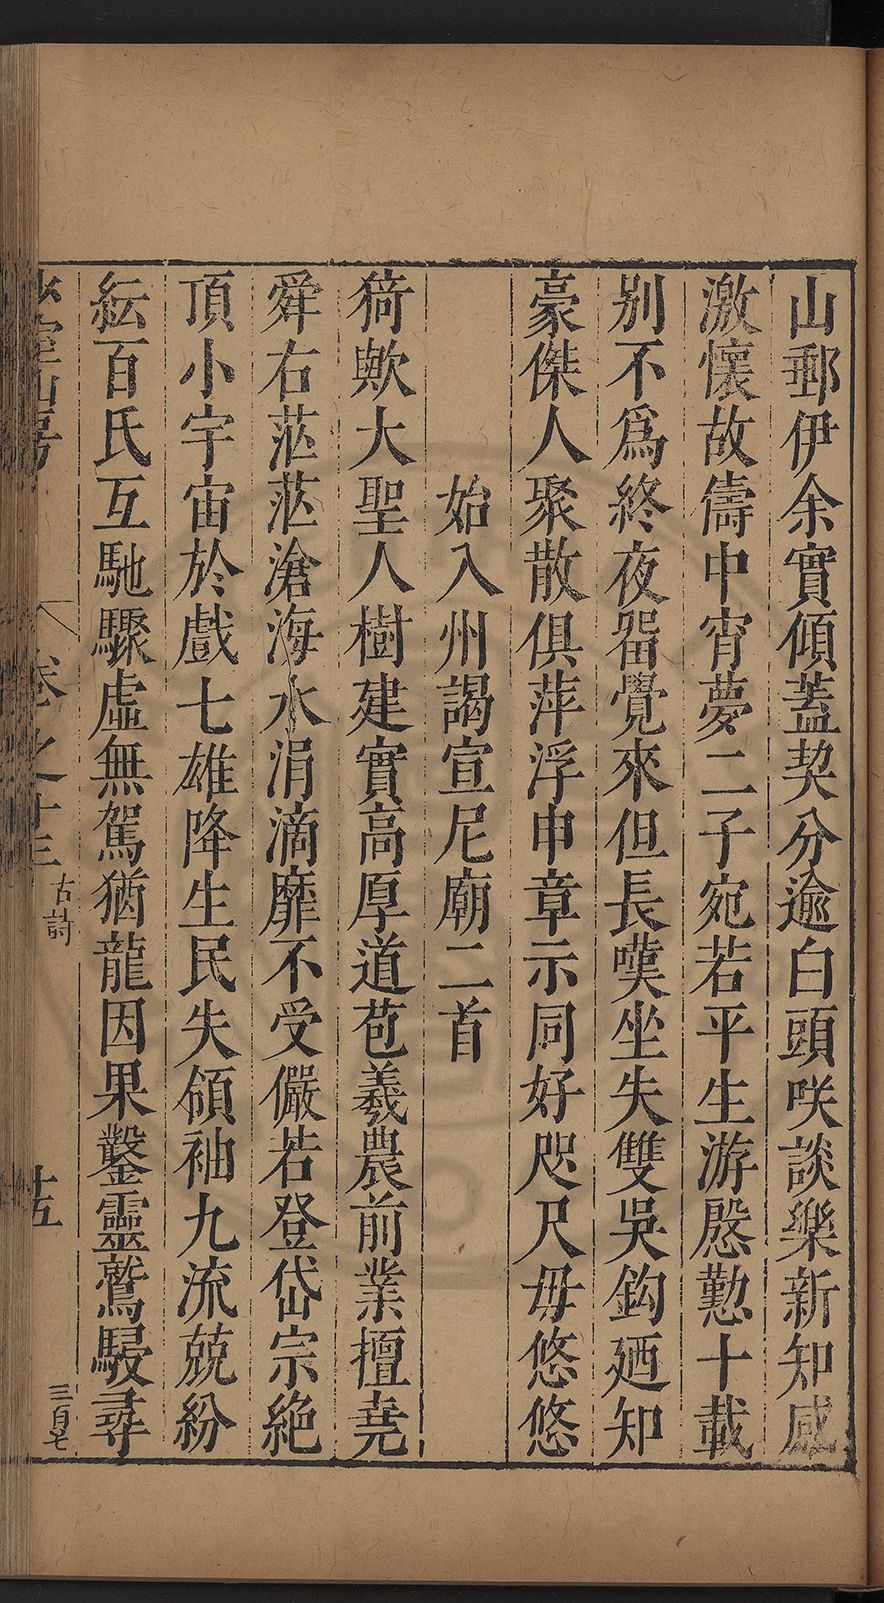 山郵伊余實傾蓋契分逾白頭咲談樂新知感
激懷故儔中宵夢二子宛若平生游慇懃十載
别不爲終夜畱覺來但長嘆坐失雙吳鈎廼知
豪傑人聚散俱萍浮申章示同好咫尺毋悠悠
始入州謁宣尼廟二首
猗歟大聖人樹建實高厚道苞羲農前業擅堯
舜右茫茫滄海水涓滴靡不受儼若登岱宗絶
頂小宇宙於戲七雄降生民失領袖九流兢紛
紜百氏互馳驟虛無駕猶龍因果鑿靈鷲騣尋
山房
卷之十三
古詩
十五
三百七